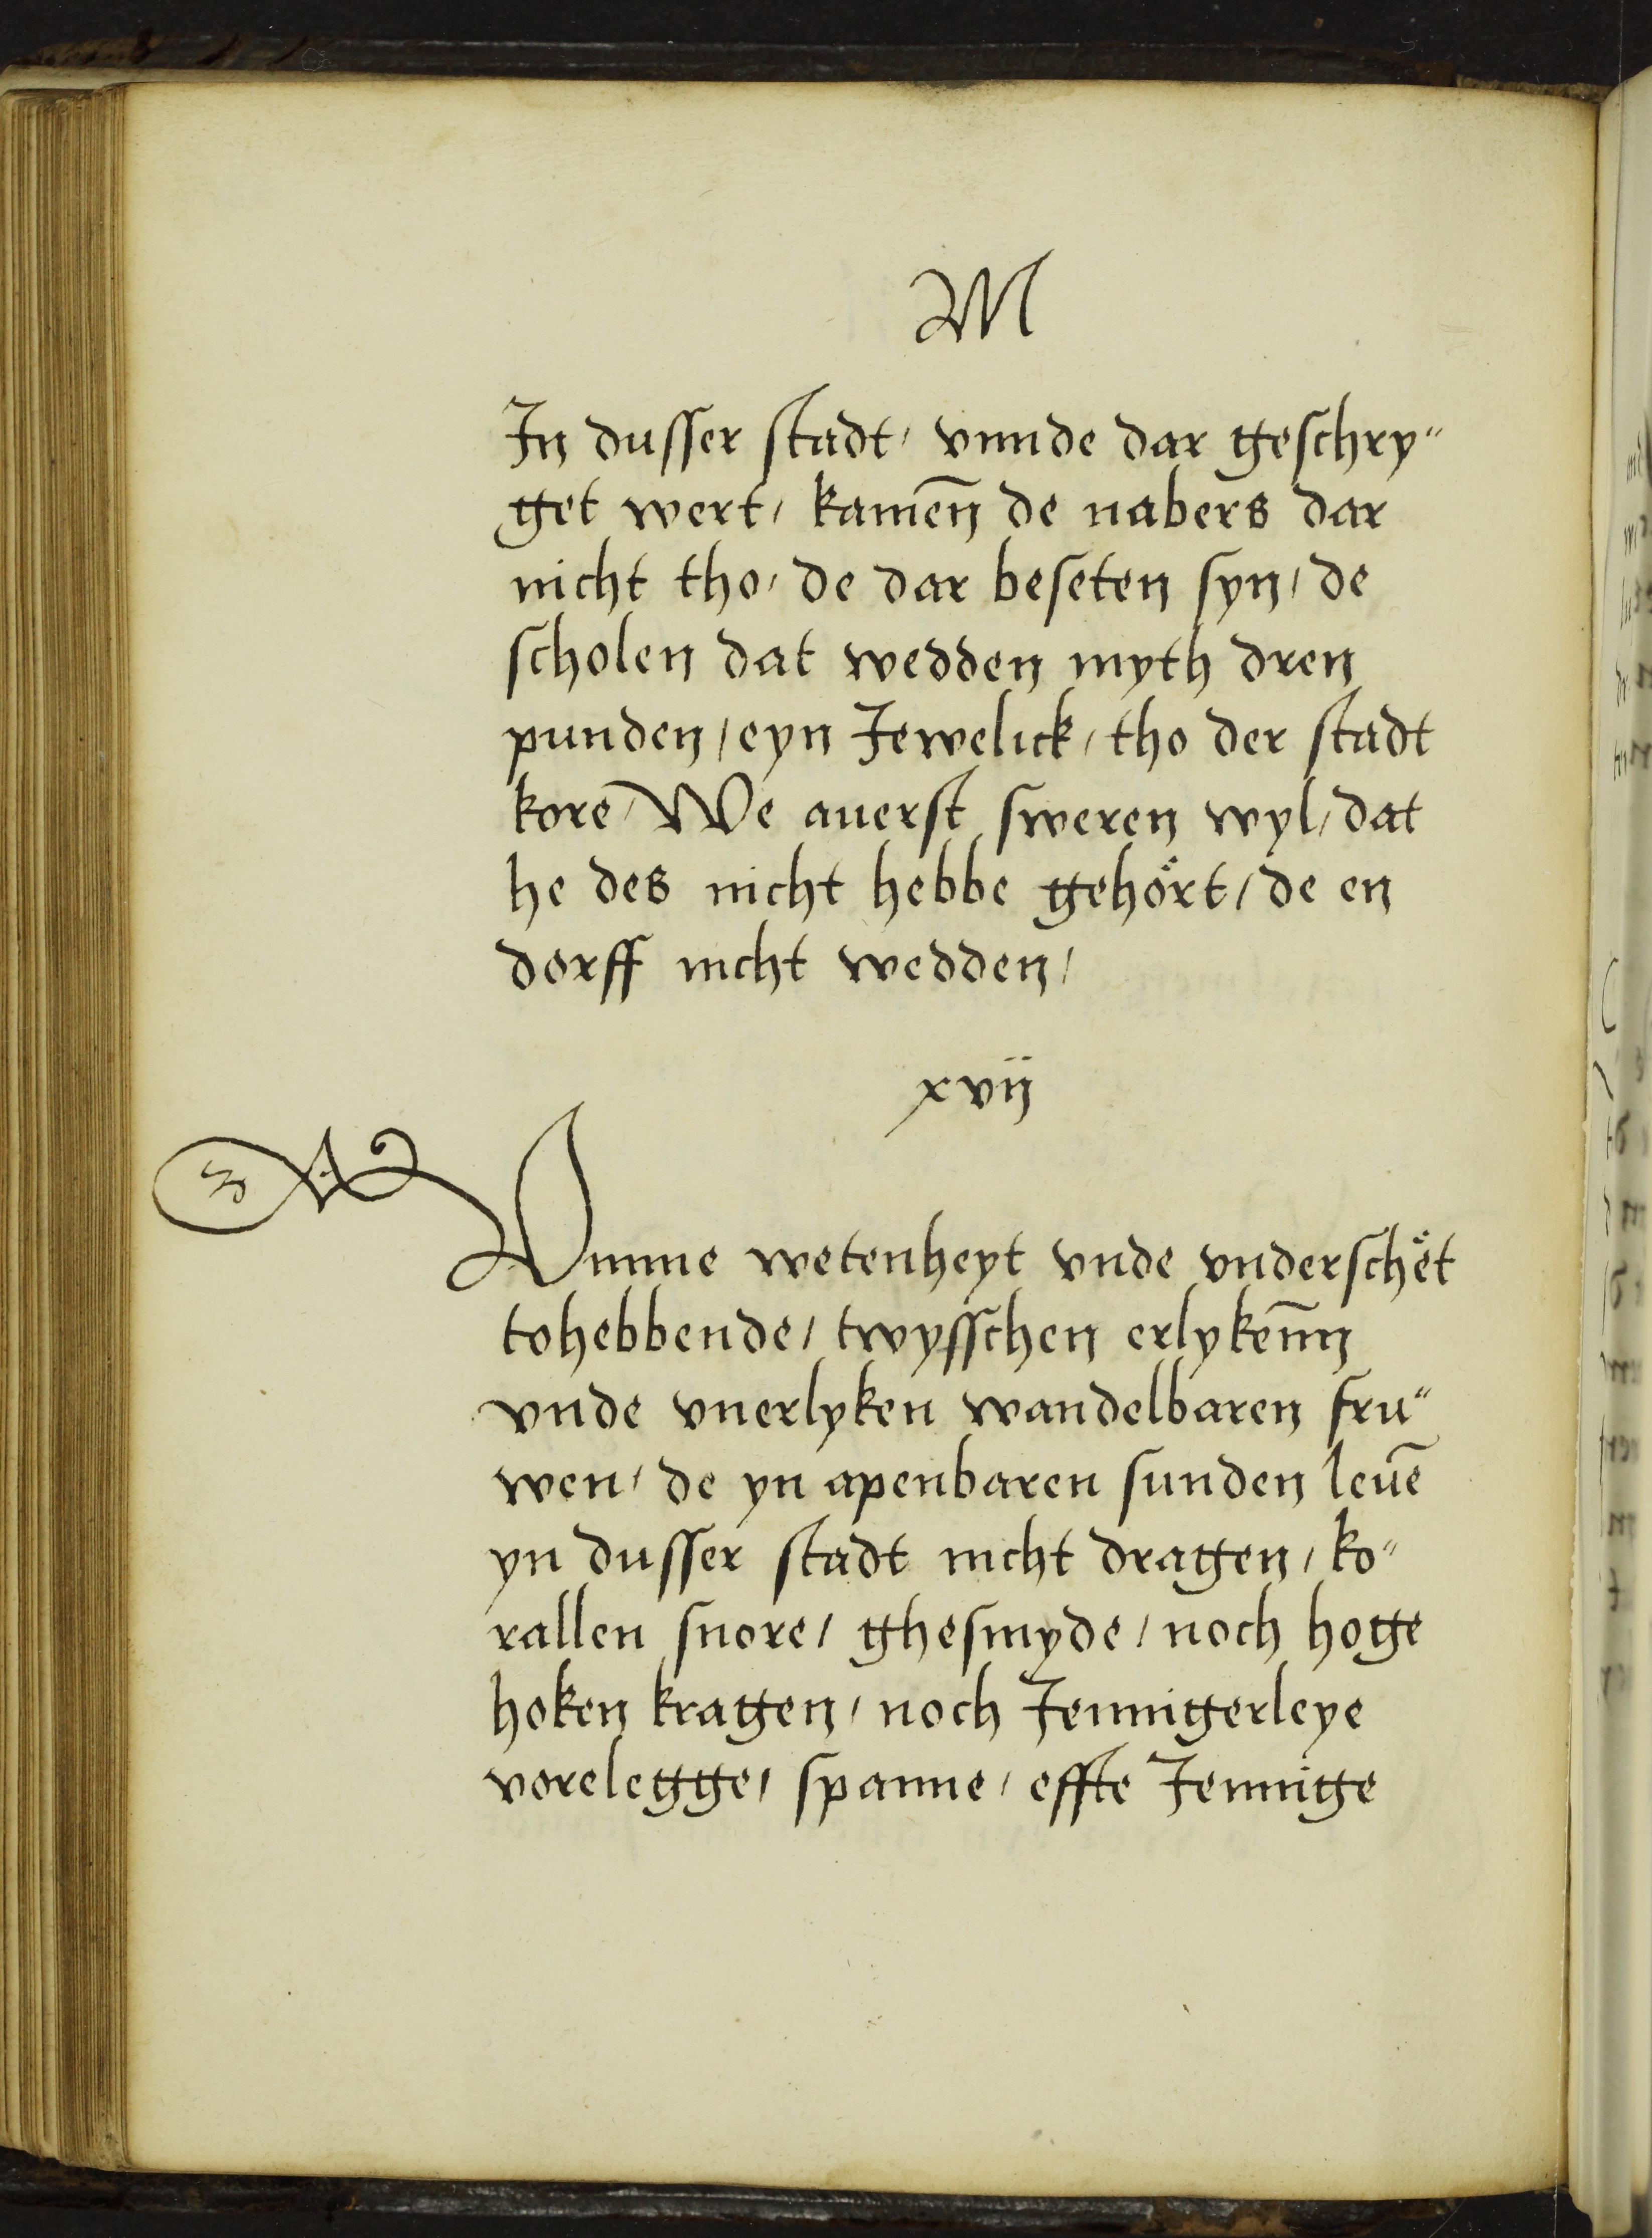 M
In dusser stadt / vnnde dar geschry"
get wert / kamēn de nabers dar
nicht tho / de dar beseten syn / de
scholen dat wedden myth dren
punden / eyn Jewelick / tho der stadt
kore / We auerst sweren wyl / dat
he des nicht hebbe gehört / de en
dorff nicht wedden /
xvij
Vmme wetenheyt vnde vnderschët
tohebbende / twysschen erlykenn̄
vnde vnerlyken wandelbaren fru"
wen / de yn apenbaren sunden leuē
yn dusser stadt nicht dragen / ko"
rallen snore / ghesmyde / noch hoge
hoken kragen / noch Jennigerleye
vorelegge / spanne / effte Jennige